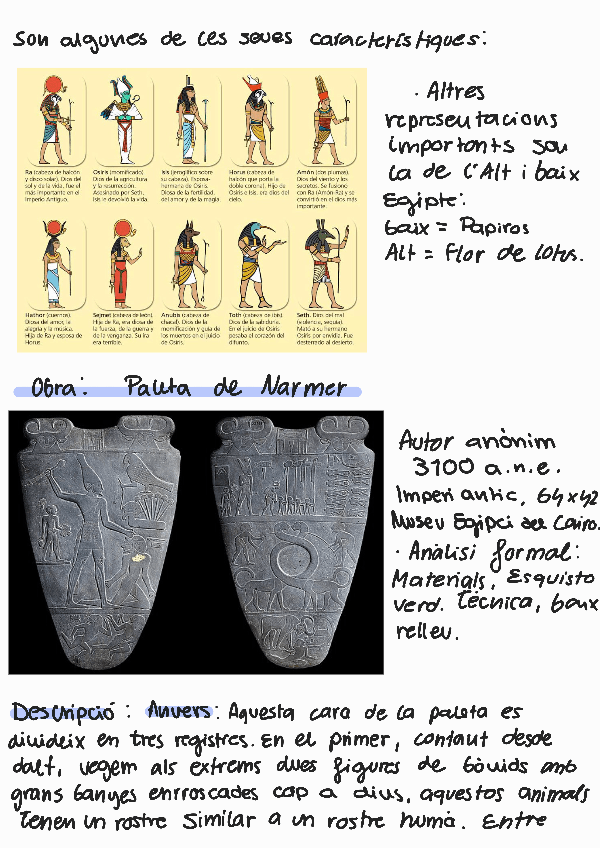 Son algunes de les seues característiques:
Ra (cabeza de halcón
y disco solar). Dios del
sol y de la vida, fue el
más importante en el
Imperio Antiguo.
Osiris (momificado)
Dios de la agricultura
y la resurrección.
Asesinado por Seth,
Isis le devolvió la vida.
Isis (jeroglífico sobre
su cabeza). Esposa-
hermana de Osiris.
Diosa de la fertilidad,
del amor y de la magia.
Horus (cabeza de
halcón que porta la
doble corona). Hijo de
Osiris e Isis, era dios del
cielo.
Amón (dos plumas).
Dios del viento y los
secretos. Se fusionó
con Ra (Amón-Ra) y se
convirtió en el dios más
importante.
Hathor (cuernos).
Diosa del amor, la
alegría y la música.
Hija de Ra y esposa de
Horus
Sejmet (cabeza de león).
Hija de Ra, era diosa de
la fuerza, de la guerra y
de la venganza. Su ira
era terrible.
Anubis (cabeza de
chacal). Dios de la
momificación y guía de
los muertos en el juicio
de Osiris.
Toth (cabeza de ibis).
Dios de la sabiduría.
En el juicio de Osiris
pesaba el corazón del
difunto.
Seth. Dios del mal
(violencia, sequía).
Mató a su hermano
Osiris por envidia. Fue
desterrado al desierto.
· Altres
representacions
importants son
la de l'Alt i baix
Egipte:
baix = Papiros
Alt = Flor de lotus.
Obra: Paleta de Narmer
Autor anònim
3100 a.n.e.
Imperi antic, 64x42
Museu Egipci del Cairo.
· Anàlisi formal:
Materials, Esquisto
verd. Tècnica, baix
relleu.
Descripció: Anvers: Aquesta cara de la paleta es
divideix en tres registres. En el primer, contant desde
dalt, vegem als extrems dues figures de bòvids amb
grans banyes enrroscades cap a dins, aquestos animals
tenen un rostre similar a un rostre humà. Entre